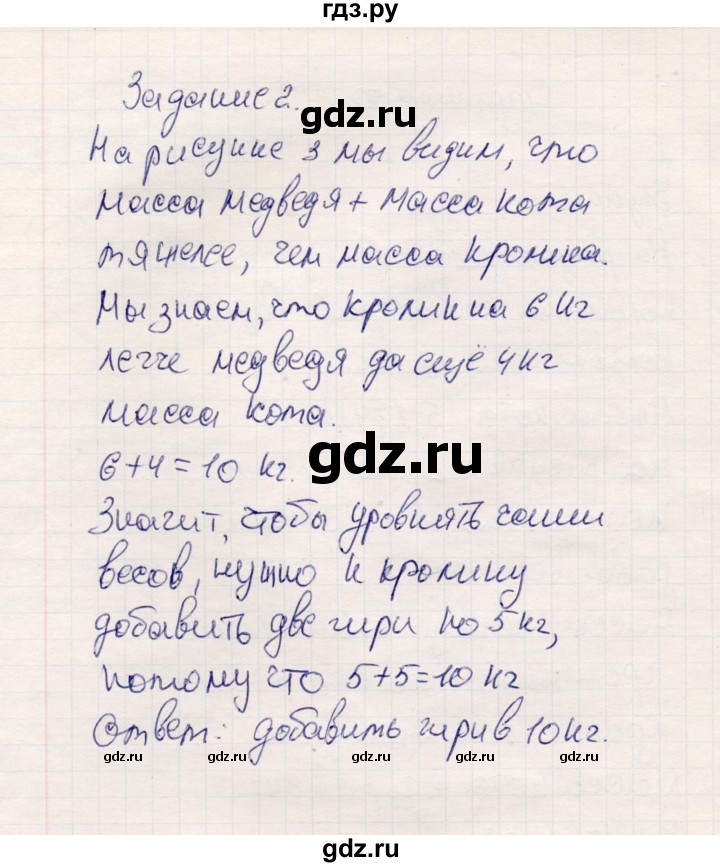 гдз.ру
Задание 2.
gdz.ru
На рисунке 3 мы видим, что
масса медведя + масса кота
тяжелее, чем масса кролика.
Мы знаем, что кролик на 6 кг
легче медведя да ещё 4 кг
масса кота.
6+4=10 кг.
gdz.ru
Значит, чтобы уровнять чаши
весов, нужно к кролику
добавить две гири по 5 кг,
потому что 5+5=10 кг
Ответ: добавить гири в 10 кг.
gdz.ru gdz.ru gdz.ru gdz.ru gdz.ru
gdz.ru